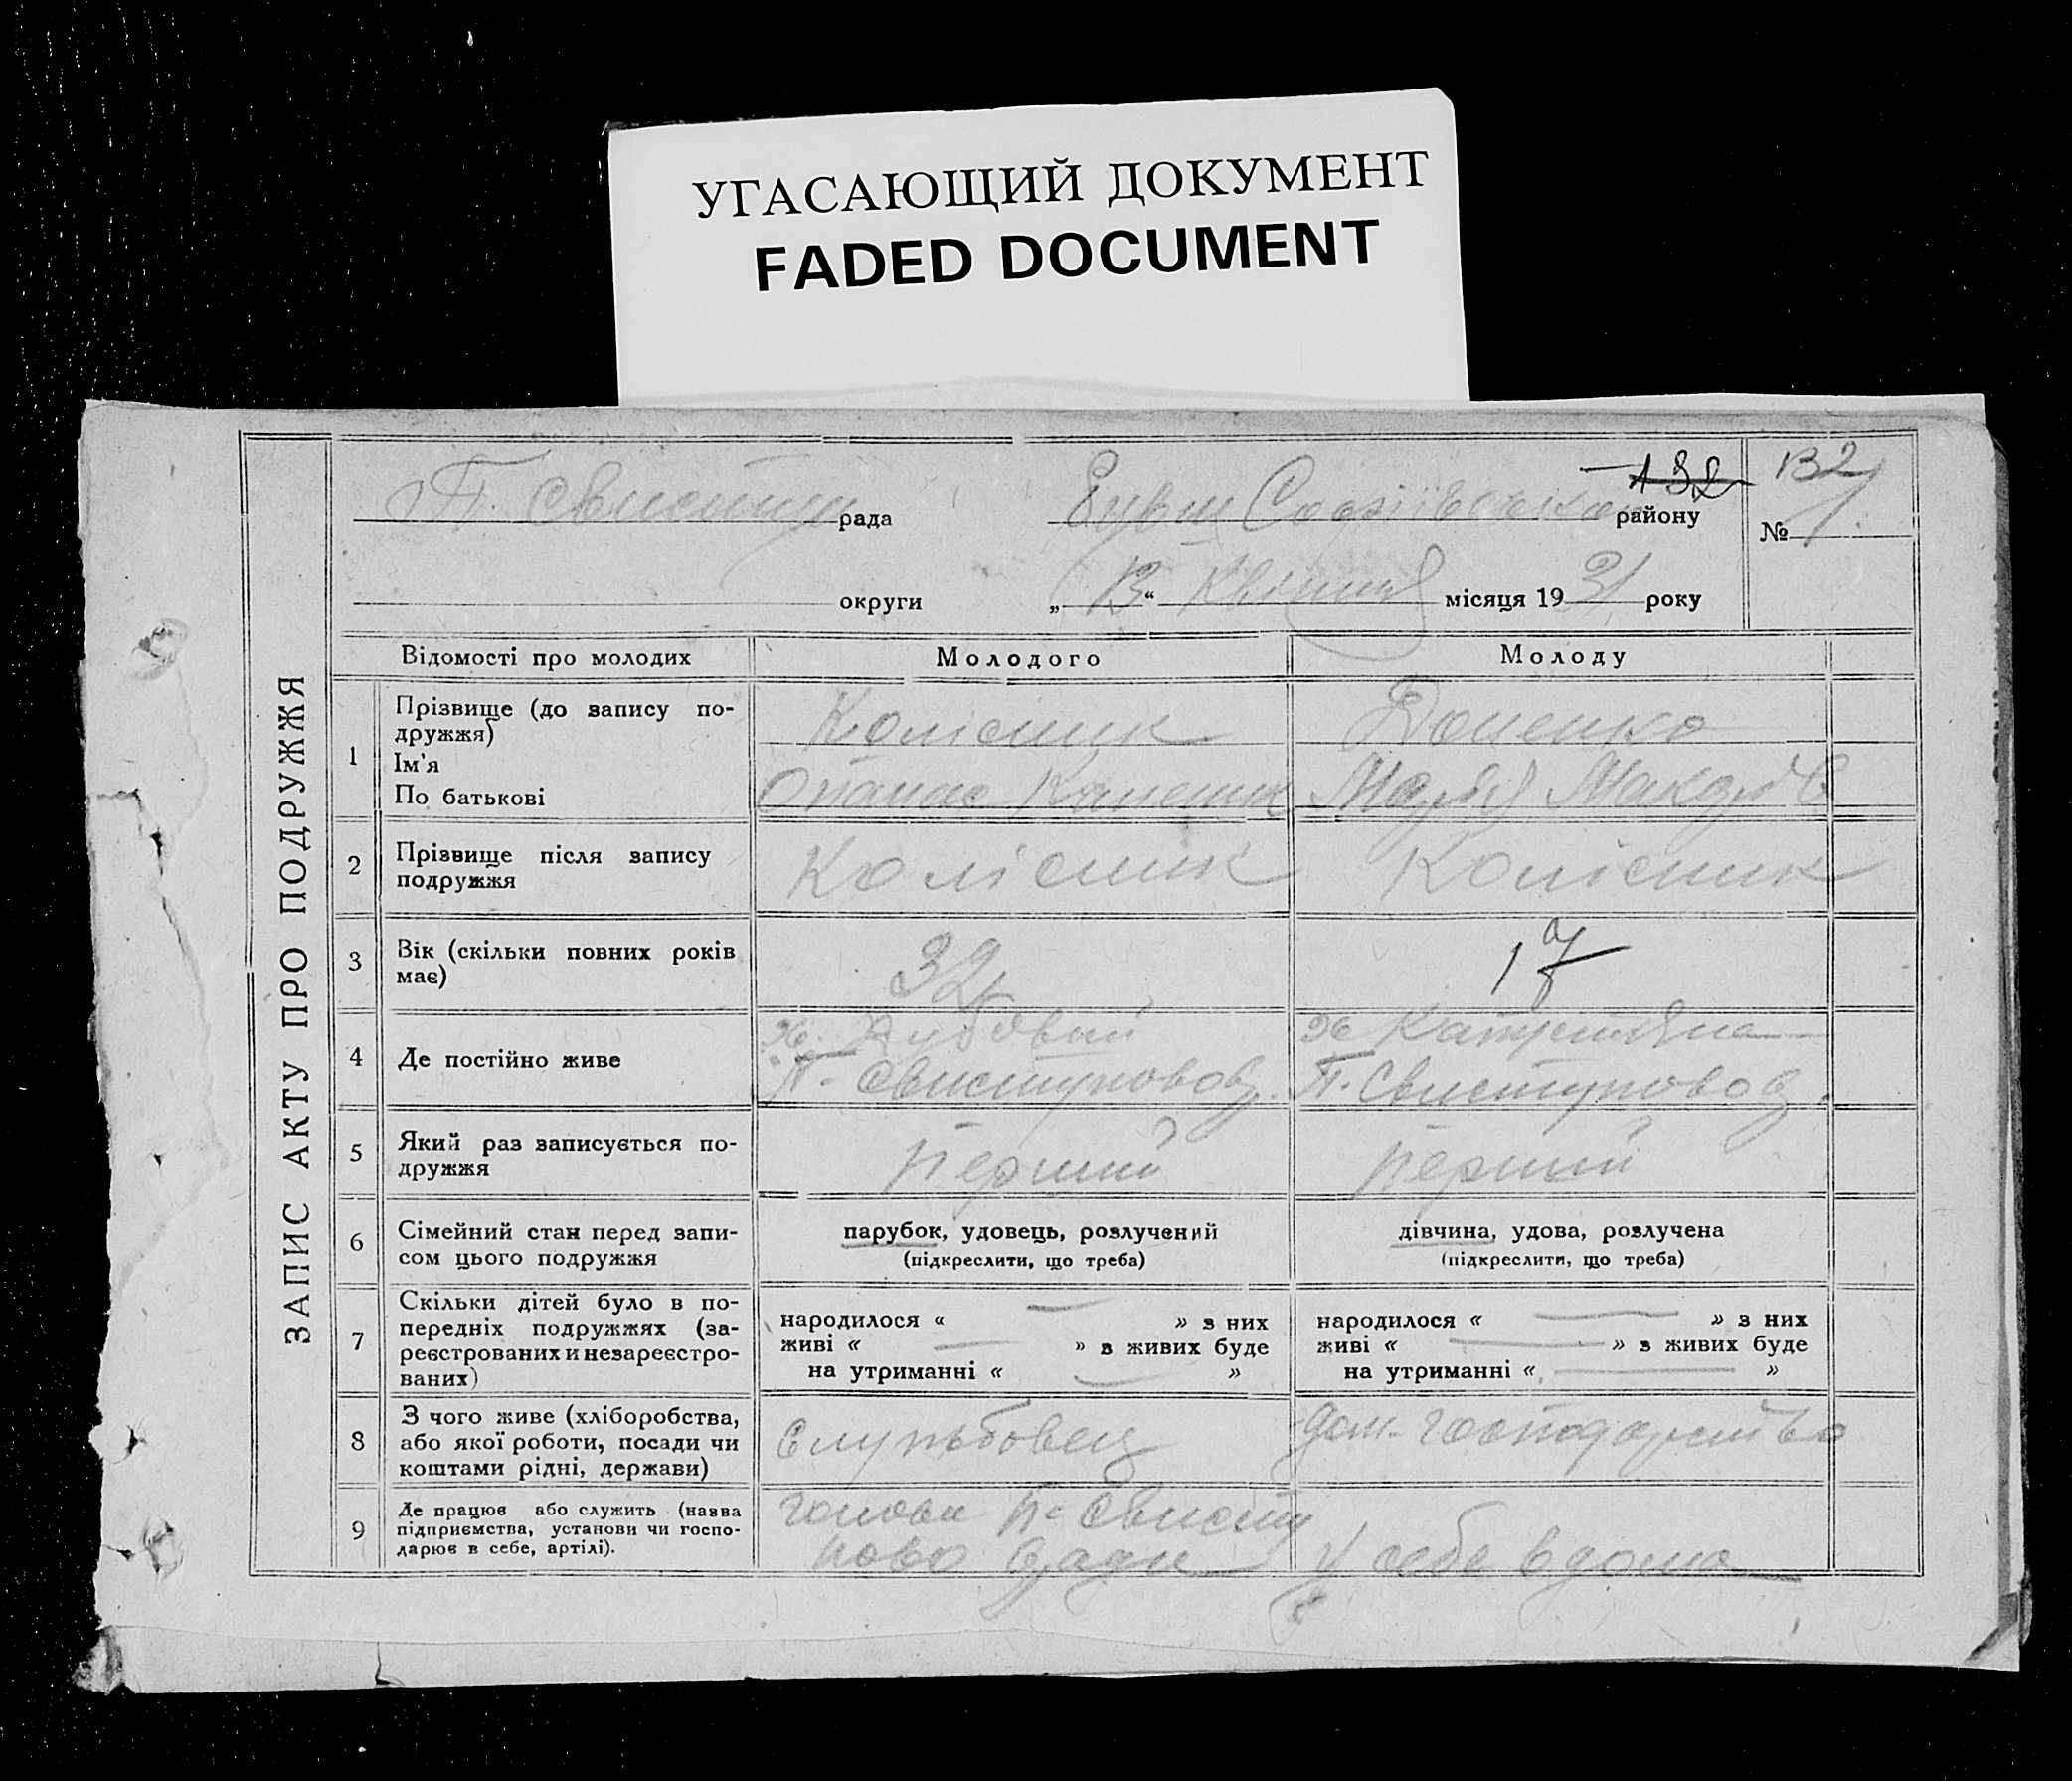 УГАСАЮЩИЙ ДОКУМЕНТ
FADED DOCUMENT
ЗАПИС АКТУ ПРО ПОДРУЖЖЯ
132 132
П. Свисту рада Софіївського району № 7
округи „13“ Квітня місяця 1931 року
Відомості про молодих Молодого Молоду
1 Прізвище (до запису по-
дружжя) Колісник Доценко
Ім'я
По батькові Опанас Марія
2 Прізвище після запису
подружжя Колісник Колісник
3 Вік (скільки повних років
має) 32 17
4 Де постійно живе х. х
П. Свистуновод. П. Свистуновод.
5 Який раз записується по-
дружжя Перший Перший
6 Сімейний стан перед запи-
сом цього подружжя
парубок, удовець, розлучений
(підкреслити, що треба)
дівчина, удова, розлучена
(підкреслити, що треба)
7 Скільки дітей було в по-
передніх подружжях (за-
реєстрованих и незареєстро-
ваних)
народилося « — » з них
живі « — » з живих буде
на утриманні « — »
народилося « — » з них
живі « — » з живих буде
на утриманні « — »
8 З чого живе (хліборобства,
або якої роботи, посади чи
коштами рідні, держави)
Службовец
Дом. господарство
9 Де працює або служить (назва
підприємства, установи чи госпо-
дарює в себе, артілі).
голова П. Свисту
ново ради
У себе вдома